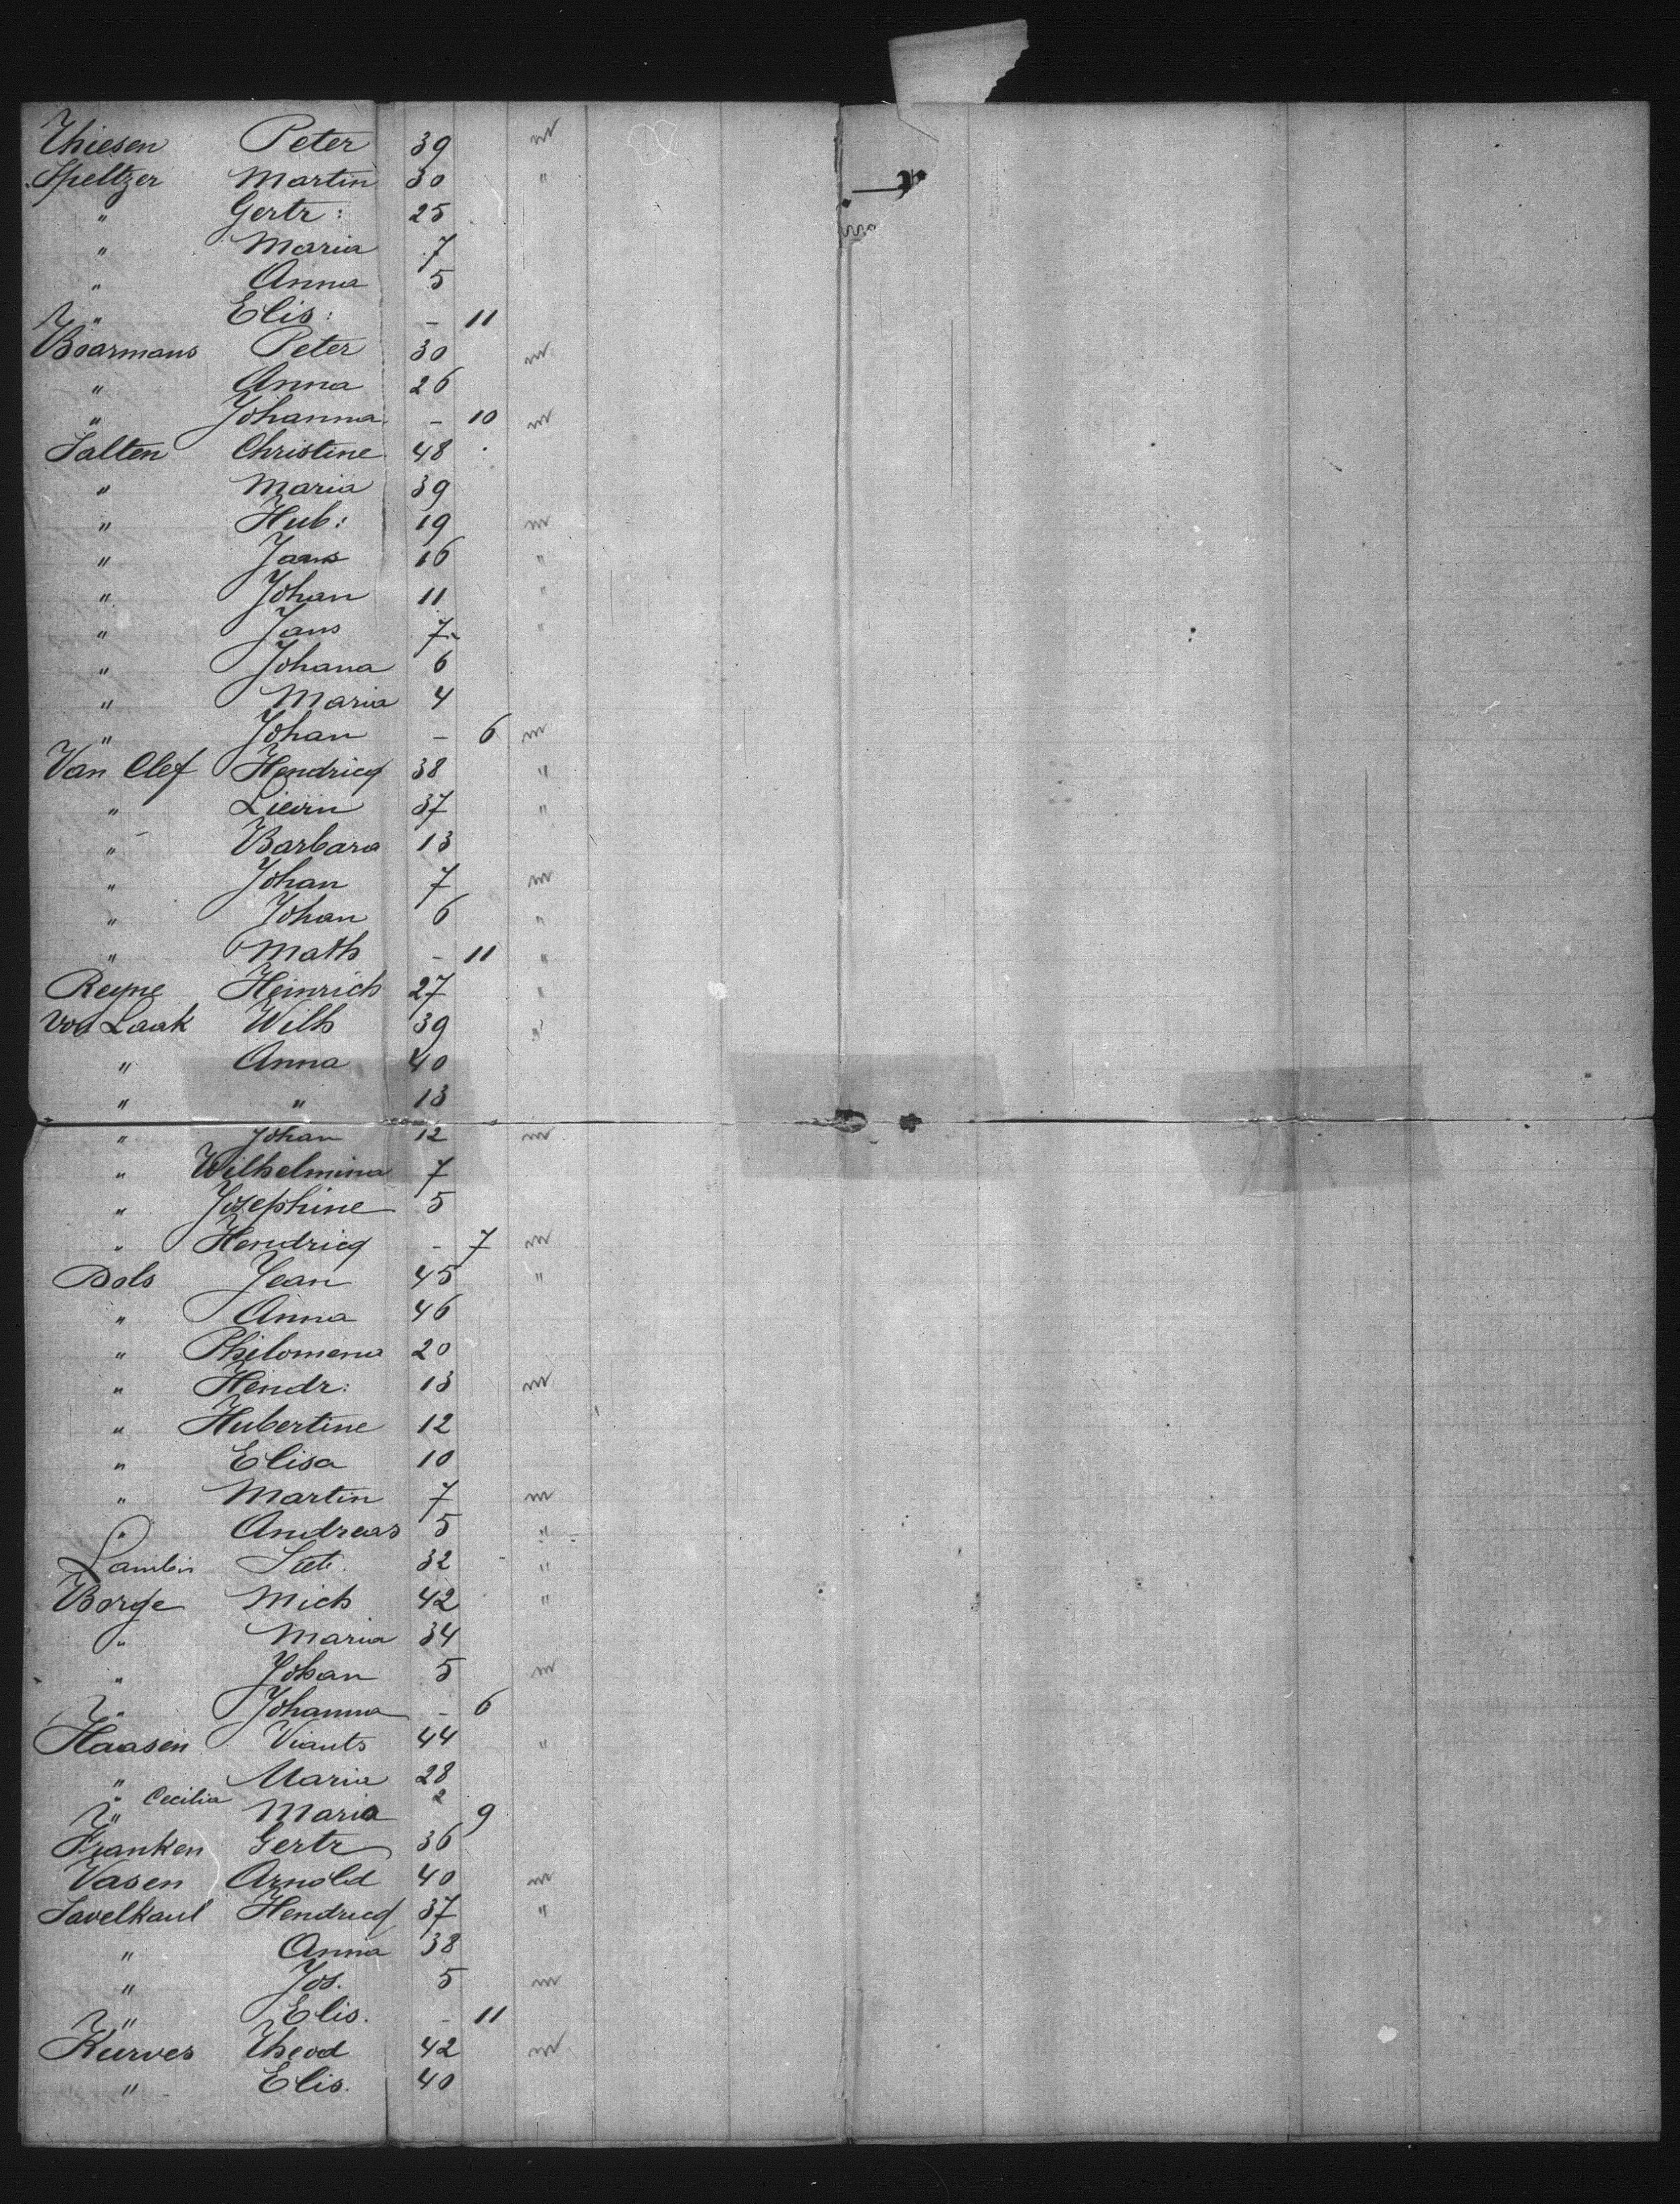 Thiesen Peter 39 m
Speltzer Martin 30 "
" Gertr: 25
" Maria 7
" Anna 5
" Elis: - 11
Boarmans Peter 30 m
" Anna 26
" Johanna - 10 m
Salten Christine 48
" Maria 39
" Hub: 19 m
" Jans 16 "
" Johan 11 "
" Jans 7 "
" Johana 6
" Maria 4
" Johan - 6 m
Van Clef Hendricq 38 "
" Lievin 37 "
" Barbara 13
" Johan 7 m
" Johan 6 "
" Math - 11 "
Reyne Heinrich 27 "
Laak Wilh 39 "
" Anna 40
" " 13
" Johan 12 m
" Wilhelmina 7
" Josephine 5
" Hendricq - 7 m
Dols Jean 45 "
" Anna 46
" Philomena 20
" Hendr: 13 m
" Hubertine 12
" Elisa 10
" Martin 7 m
" Andreas 5 "
32 "
Borge Mich 42 "
" Maria 34
" Johan 5 m
" Johanna - 6
Haasen 44 "
" Maria 28
" Cecilia 2
" Maria 9
Franken Gertr 36
Vasen Arnold 40 m
Savelkaul Hendricq 37 "
" Anna 38
" Jos. 5 m
" Elis. - 11
Kurves Theod 42 m
" Elis. 40